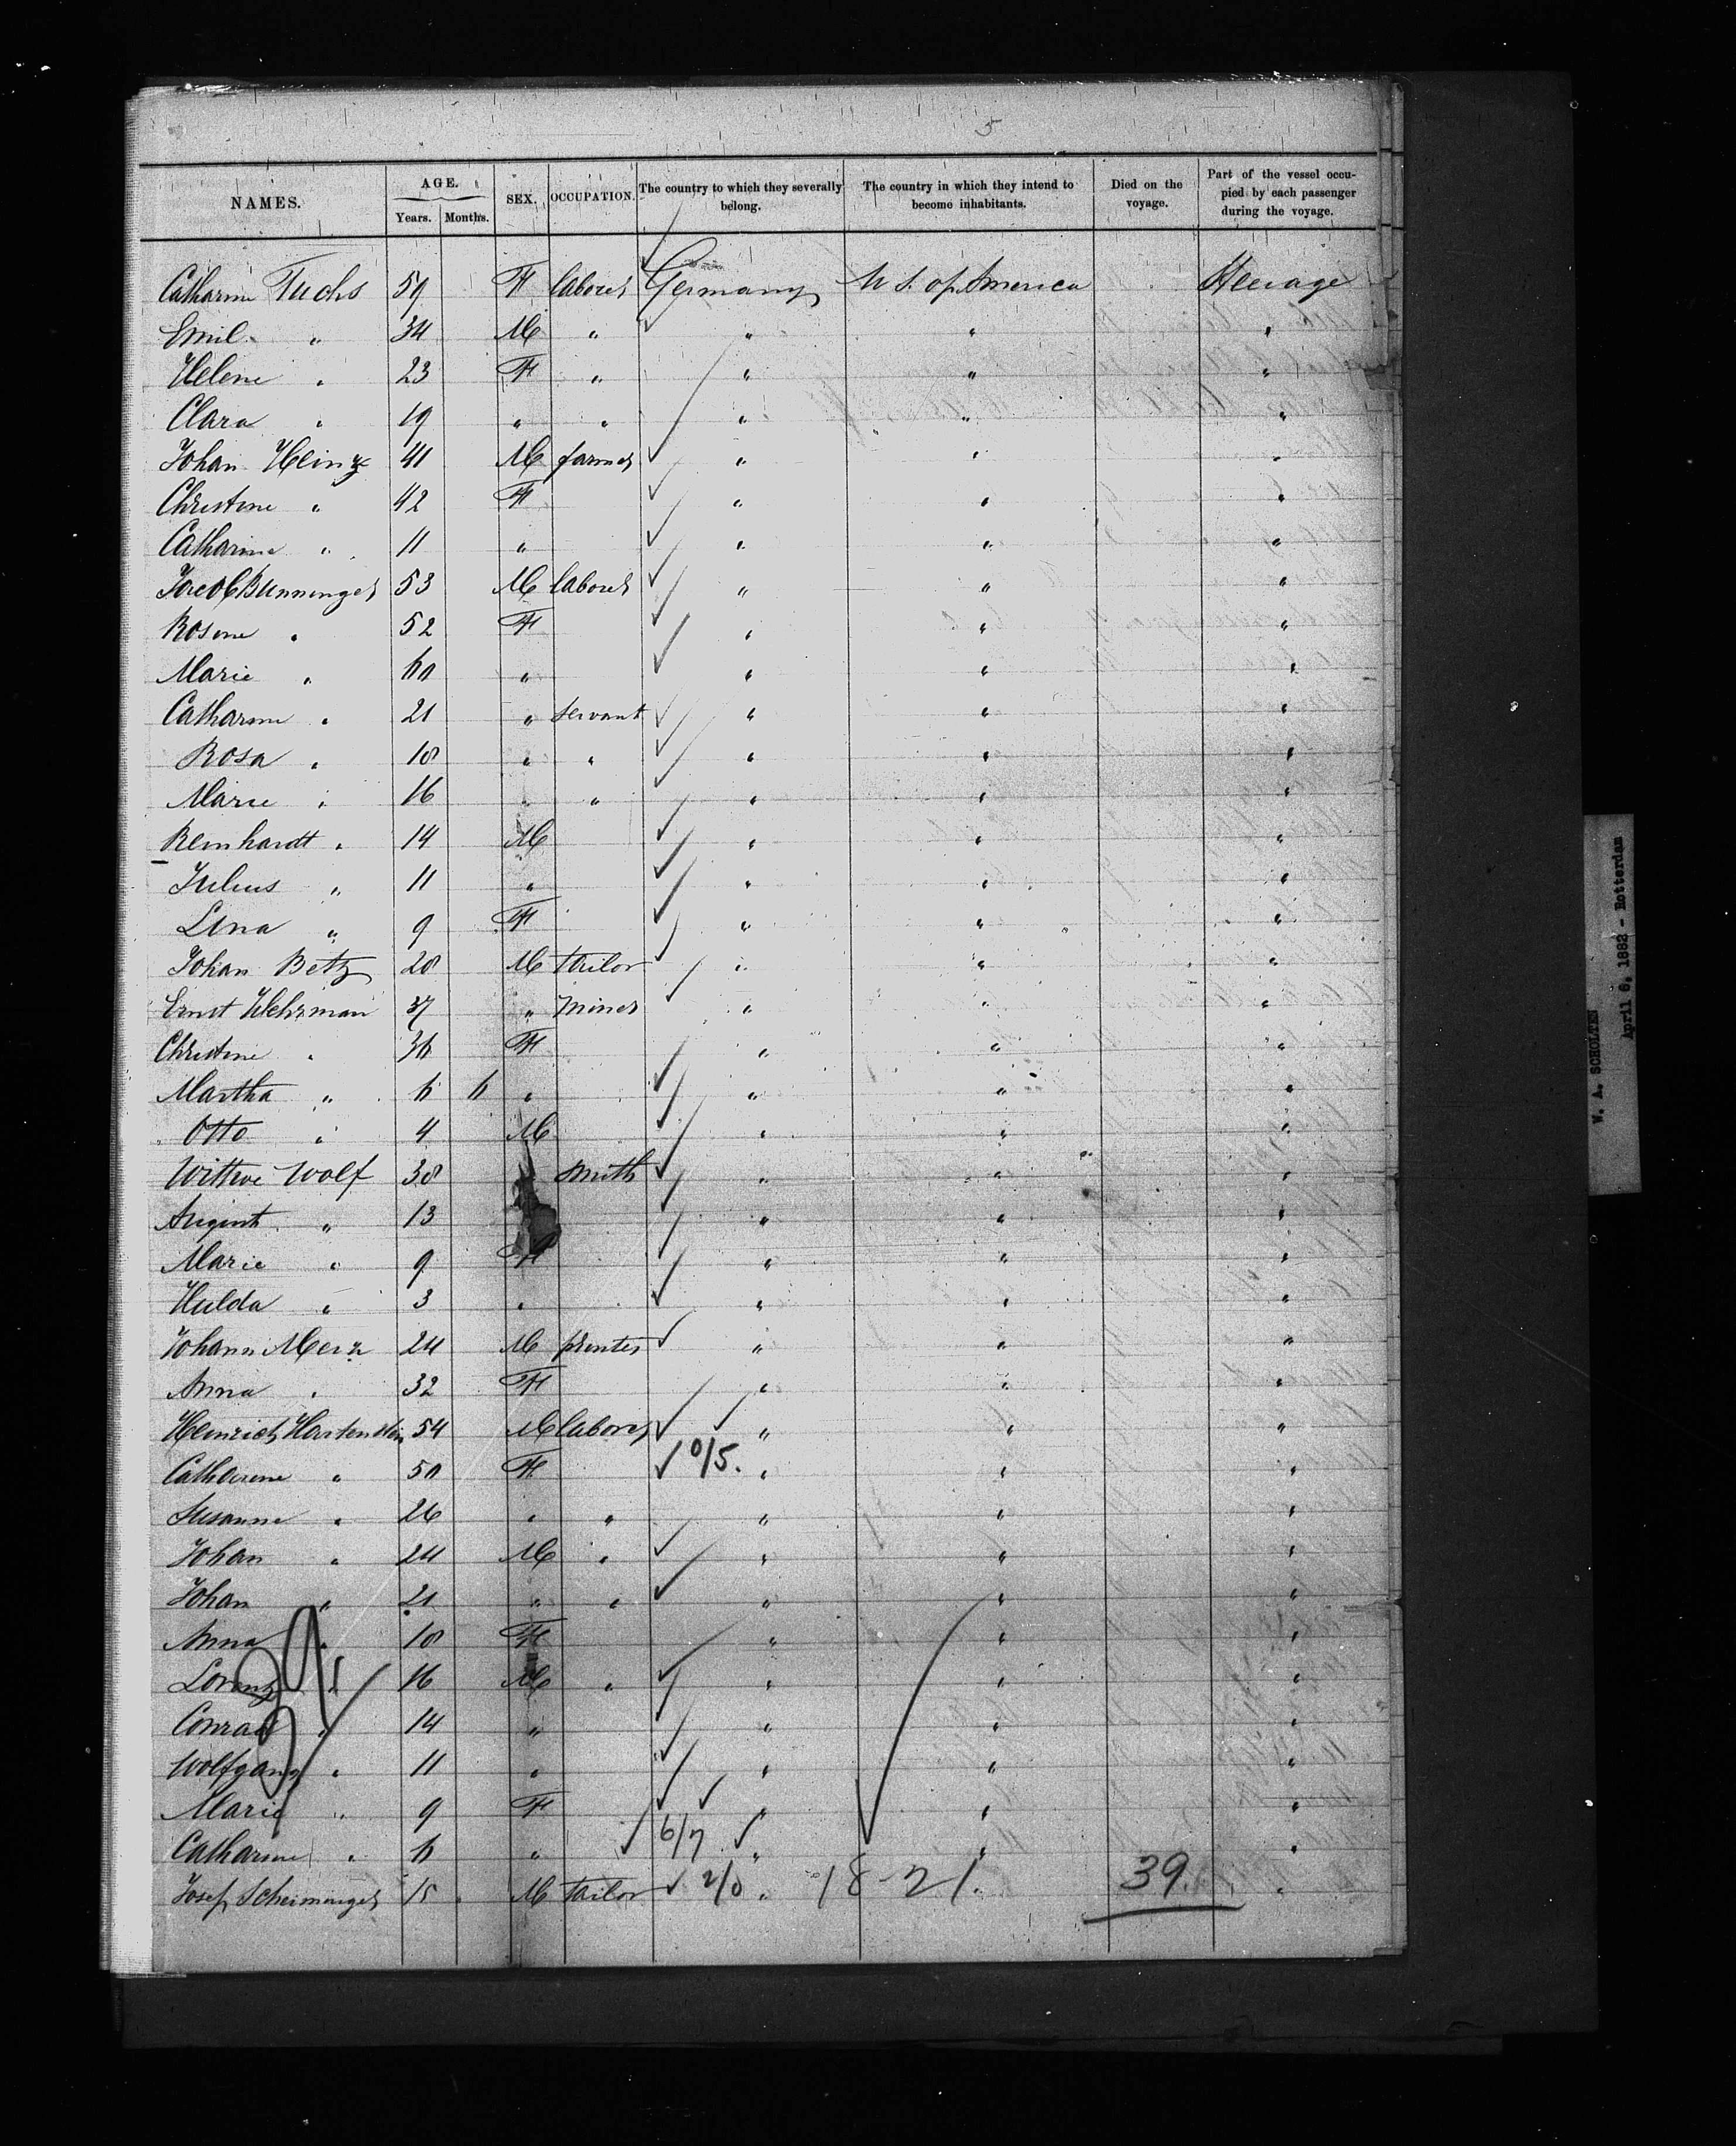 5
NAMES. AGE. Years. Months. SEX. OCCUPATION. The country to which they severally belong. The country in which they intend to become inhabitants. Died on the voyage. Part of the vessel occupied by each passenger during the voyage.
Catharine Fuchs 59 F laborer Germany U S. of America Steerage
Emil " 34 M " " " "
Helene " 23 F " " " "
Clara " 19 " " " " "
Johan Heinz 41 M farmer " " "
Christine " 42 F " " "
Catharine " 11 " " " "
Jacob Bunninger 53 M laborer " " "
Rosine " 52 F " " "
Marie " 60 " " " "
Catharine " 21 " servant " " "
Rosa " 18 " " " " "
Marie " 16 " " " " "
Reinhardt " 14 M " " "
Julius " 11 " " " "
Lina " 9 F " " "
Johan Betz 28 M tailor " " "
Ernst Wehrman 37 " miner " " "
Christine " 36 F " " "
Martha " 6 6 " " " "
Otto " 4 M " " "
Wittwe Wolf 38 smith " " "
August " 13 " " "
Marie " 9 F " " "
Hulda " 3 " " " "
Johann Merz 24 M printer " " "
Anna " 32 F " " "
Heinrich Hartenstein 54 M laborer " " "
Catharine " 50 F 10/5. " " "
Susanne " 26 " " " " "
Johan " 24 M " " " "
Johan " 21 " " " " "
Anna " 18 F " " "
Lorenz " 16 M " " " "
Conrad " 14 " " " "
Wolfgang " 11 " " " "
Marie " 9 F " " "
Catharine " 6 " 6/7 " " "
Josef Scheiminger 15 M tailor 2/0 " 18-21 " 39. "
39
W. A. SCHOLTEN
April 6, 1882 - Rotterdam